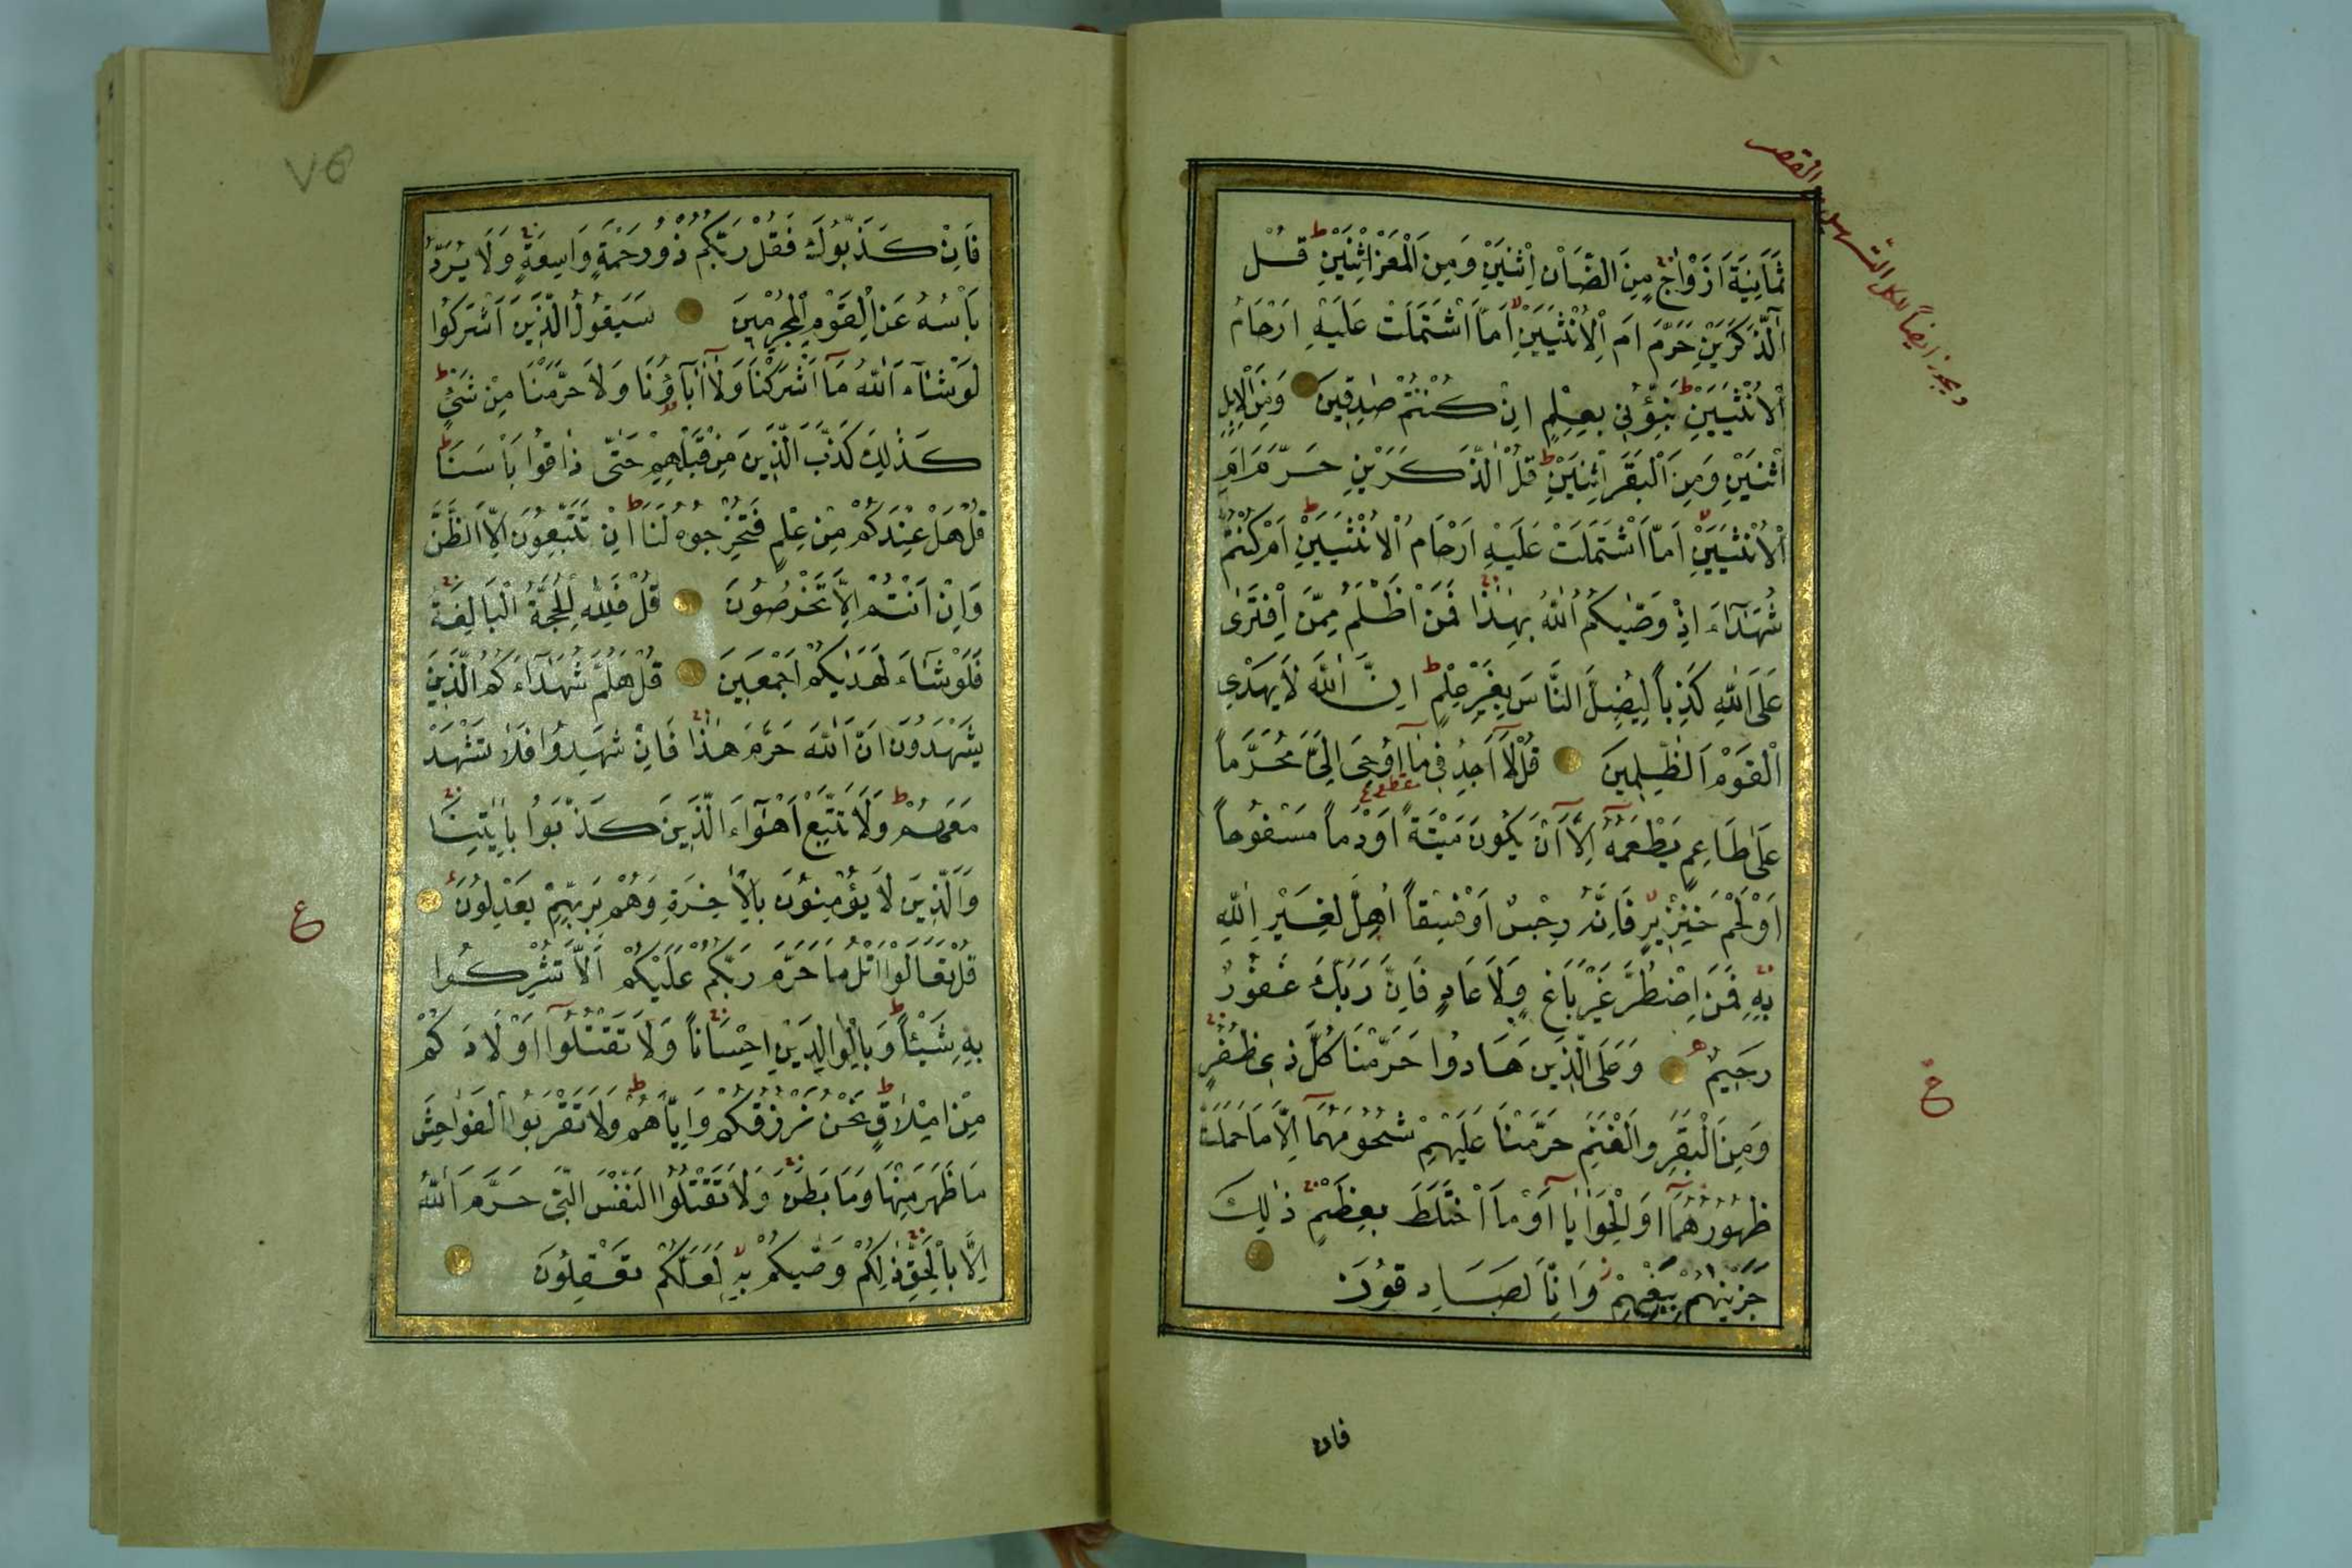 ويجوز ايضاً لكل التسهيل والقصر
ثَمَانِيَةَ اَزْوَاجٍ مِنَ الضَّاْنِ اثْنَيْنِ وَمِنَ الْمَعْزِ اثْنَيْنِ ط قُلْ
آلذَّكَرَيْنِ حَرَّمَ اَمِ الْاُنْثَيَيْنِ اَمَّا اشْتَمَلَتْ عَلَيْهِ اَرْحَامُ
الْاُنْثَيَيْنِ ط نَبِّؤُنِي بِعِلْمٍ اِنْ كُنْتُمْ صٰدِقِينَ وَمِنَ الْاِبِلِ
اثْنَيْنِ وَمِنَ الْبَقَرِ اثْنَيْنِ ط قُلْ آلذَّكَرَيْنِ حَرَّمَ اَمِ
الْاُنْثَيَيْنِ اَمَّا اشْتَمَلَتْ عَلَيْهِ اَرْحَامُ الْاُنْثَيَيْنِ ط اَمْ كُنْتُمْ
شُهَدَآءَ اِذْ وَصّٰيكُمُ اللّٰهُ بِهٰذَا فَمَنْ اَظْلَمُ مِمَّنِ افْتَرٰى
عَلَى اللّٰهِ كَذِباً لِيُضِلَّ النَّاسَ بِغَيْرِ عِلْمٍ ط اِنَّ اللّٰهَ لَا يَهْدِي
الْقَوْمَ الظّٰلِمِينَ قُلْ لَآ اَجِدُ فِي مَآ اُوحِيَ اِلَيَّ مُحَرَّماً
عَلٰى طَاعِمٍ يَطْعَمُهُ اِلَّآ اَنْ يَكُونَ مَيْتَةً اَوْ دَماً مَسْفُوحاً
اَوْ لَحْمَ خِنْزِيرٍ فَاِنَّهُ رِجْسٌ اَوْ فِسْقاً اُهِلَّ لِغَيْرِ اللّٰهِ
بِهِ فَمَنِ اضْطُرَّ غَيْرَ بَاغٍ وَلَا عَادٍ فَاِنَّ رَبَّكَ غَفُورٌ
رَحِيمٌ وَعَلَى الَّذِينَ هَادُوا حَرَّمْنَا كُلَّ ذِي ظُفُرٍ
ع
وَمِنَ الْبَقَرِ وَالْغَنَمِ حَرَّمْنَا عَلَيْهِمْ شُحُومَهُمَآ اِلَّا مَا حَمَلَتْ
ظُهُورُهُمَآ اَوِ الْحَوَايَآ اَوْ مَا اخْتَلَطَ بِعَظْمٍ ذٰلِكَ
جَزَيْنٰهُمْ بِبَغْيِهِمْ وَاِنَّا لَصَادِقُونَ
فان
٧٥
فَاِنْ كَذَّبُوكَ فَقُلْ رَبُّكُمْ ذُو رَحْمَةٍ وَاسِعَةٍ وَلَا يُرَدُّ
بَاْسُهُ عَنِ الْقَوْمِ الْمُجْرِمِينَ سَيَقُولُ الَّذِينَ اَشْرَكُوا
لَوْ شَآءَ اللّٰهُ مَآ اَشْرَكْنَا وَلَآ اٰبَآؤُنَا وَلَا حَرَّمْنَا مِنْ شَيْءٍ ط
كَذٰلِكَ كَذَّبَ الَّذِينَ مِنْ قَبْلِهِمْ حَتّٰى ذَاقُوا بَاْسَنَا ط
قُلْ هَلْ عِنْدَكُمْ مِنْ عِلْمٍ فَتُخْرِجُوهُ لَنَا ط اِنْ تَتَّبِعُونَ اِلَّا الظَّنَّ
وَاِنْ اَنْتُمْ اِلَّا تَخْرُصُونَ قُلْ فَلِلّٰهِ الْحُجَّةُ الْبَالِغَةُ
فَلَوْ شَآءَ لَهَدٰيكُمْ اَجْمَعِينَ قُلْ هَلُمَّ شُهَدَآءَكُمُ الَّذِينَ
يَشْهَدُونَ اَنَّ اللّٰهَ حَرَّمَ هٰذَا فَاِنْ شَهِدُوا فَلَا تَشْهَدْ
مَعَهُمْ ط وَلَا تَتَّبِعْ اَهْوَآءَ الَّذِينَ كَذَّبُوا بِاٰيٰتِنَا
وَالَّذِينَ لَا يُؤْمِنُونَ بِالْاٰخِرَةِ وَهُمْ بِرَبِّهِمْ يَعْدِلُونَ
ع
قُلْ تَعَالَوْا اَتْلُ مَا حَرَّمَ رَبُّكُمْ عَلَيْكُمْ اَلَّا تُشْرِكُوا
بِهِ شَيْئاً ط وَبِالْوَالِدَيْنِ اِحْسَاناً وَلَا تَقْتُلُوآ اَوْلَادَكُمْ
مِنْ اِمْلَاقٍ ط نَحْنُ نَرْزُقُكُمْ وَاِيَّاهُمْ ط وَلَا تَقْرَبُوا الْفَوَاحِشَ
مَا ظَهَرَ مِنْهَا وَمَا بَطَنَ وَلَا تَقْتُلُوا النَّفْسَ الَّتِي حَرَّمَ اللّٰهُ
اِلَّا بِالْحَقِّ ذٰلِكُمْ وَصّٰيكُمْ بِهِ لَعَلَّكُمْ تَعْقِلُونَ